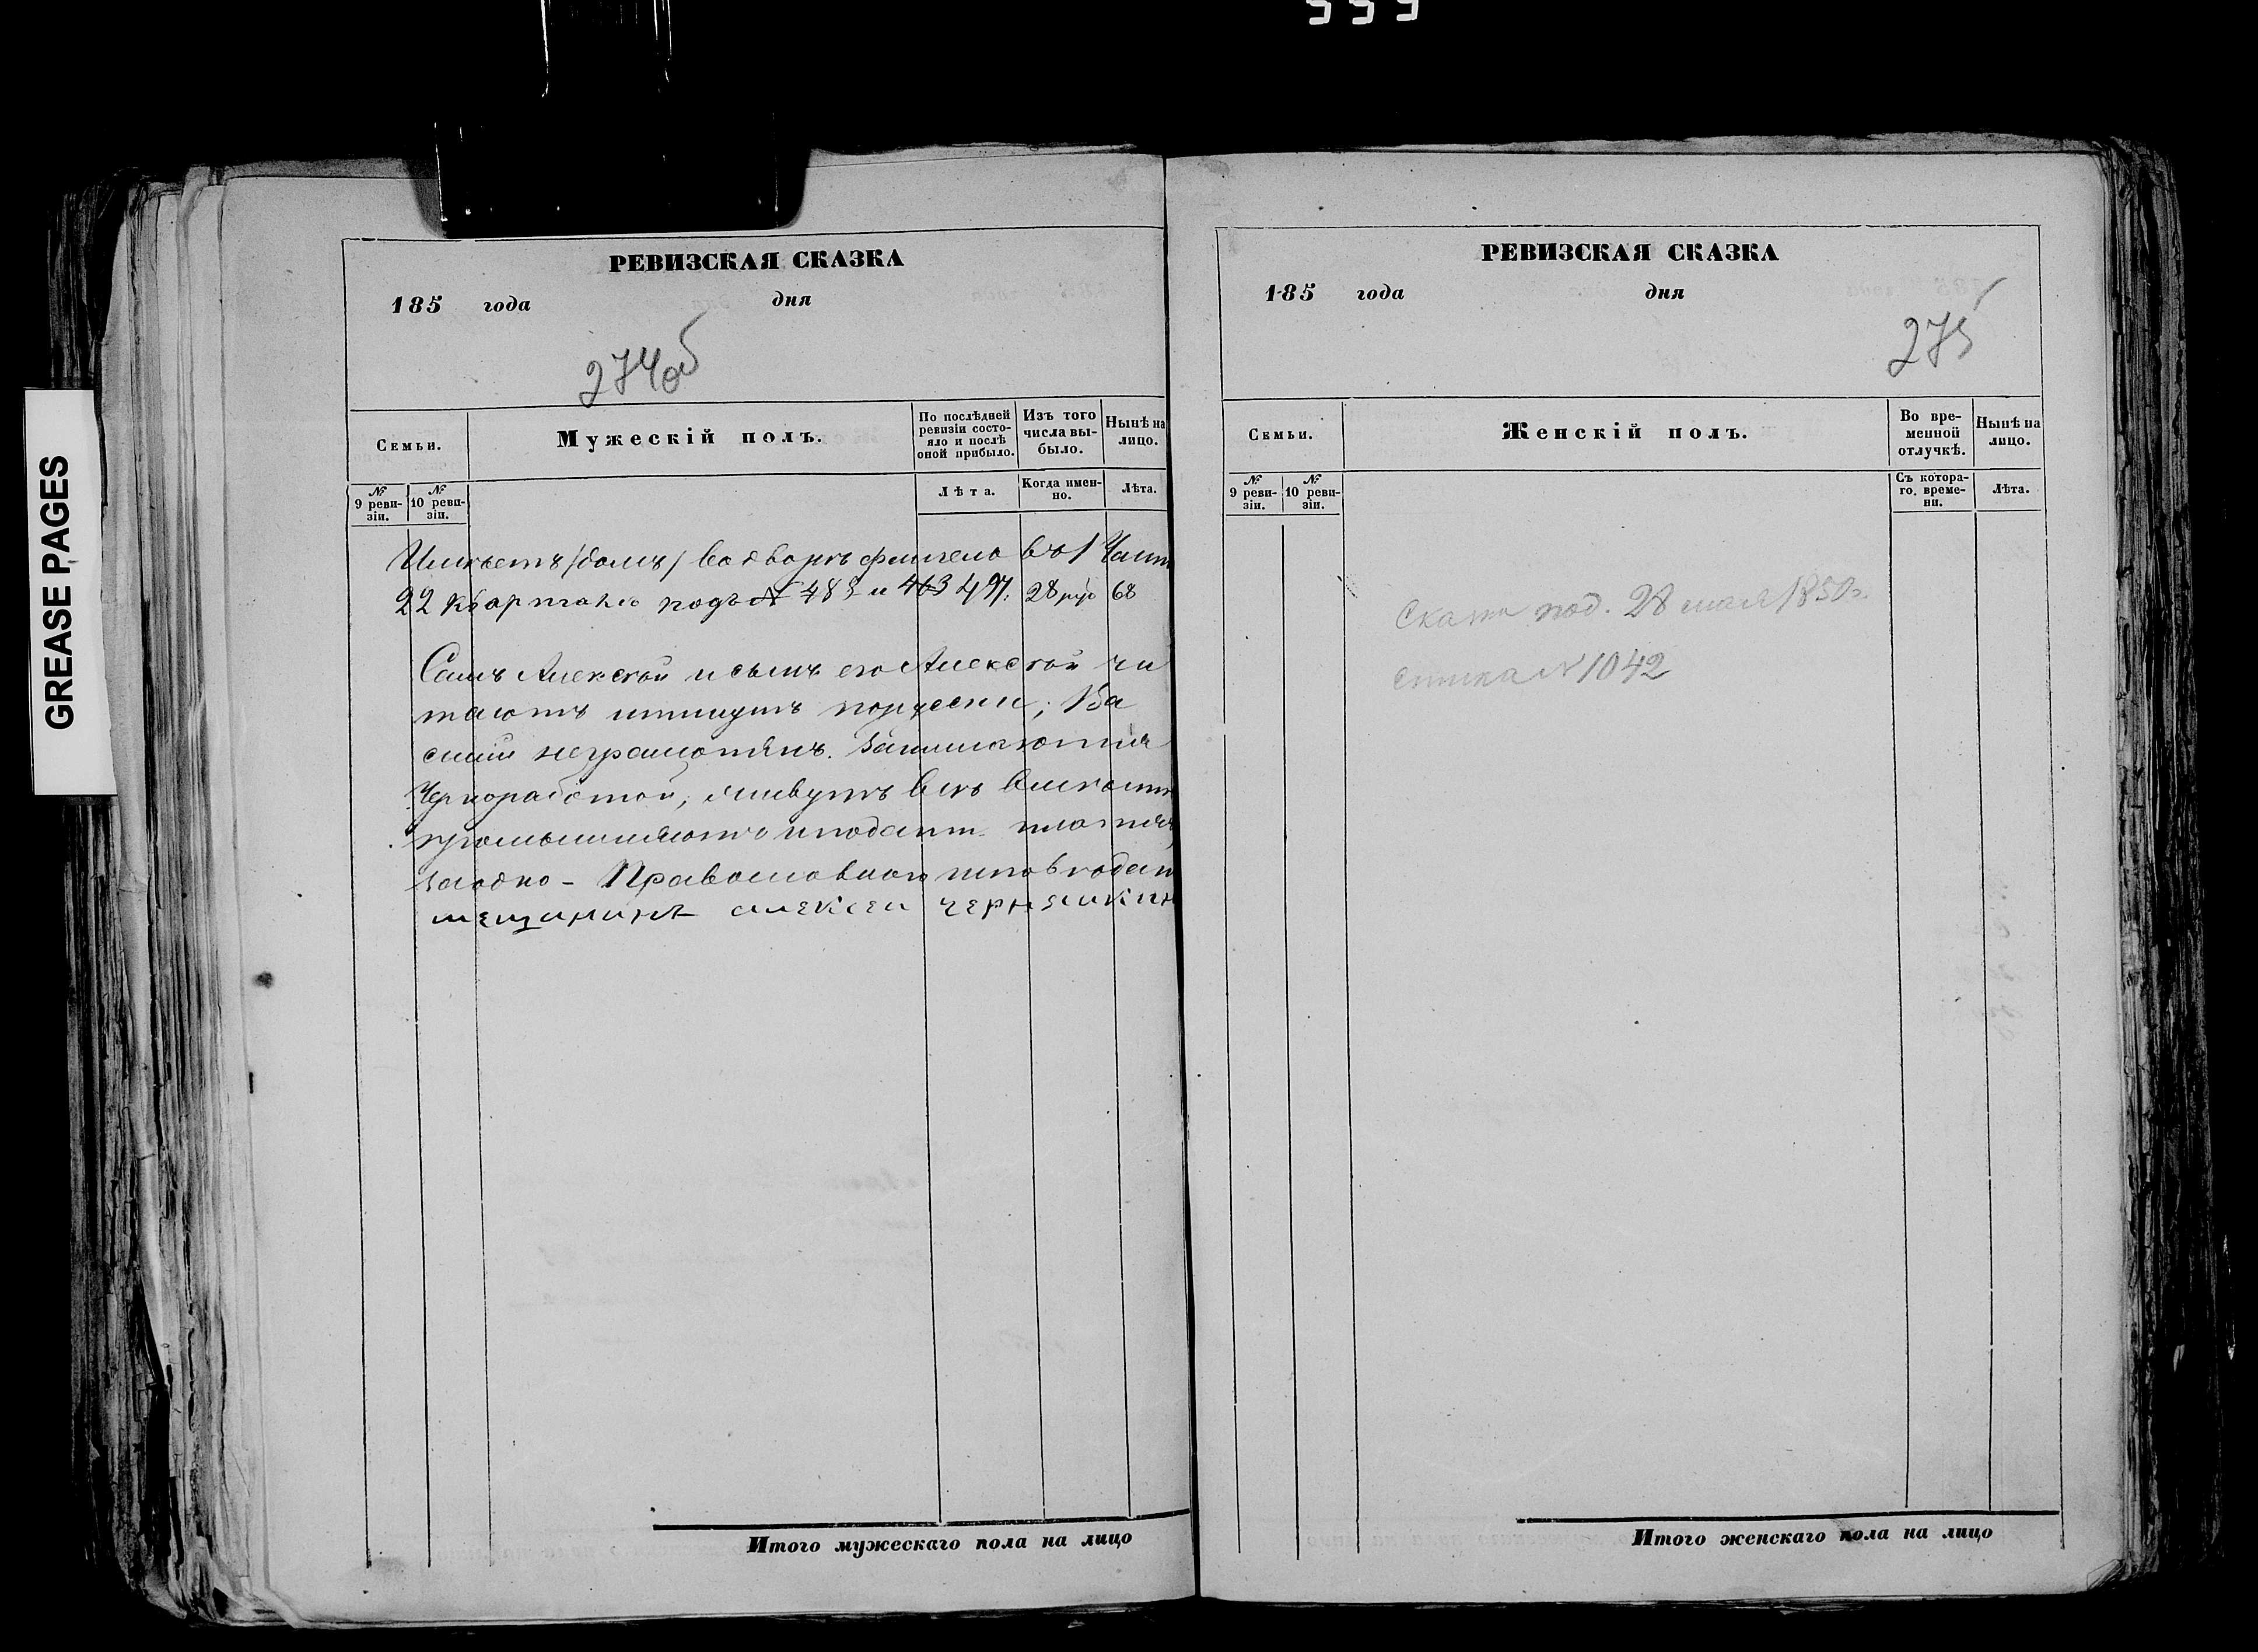 GREASE PAGES
РЕВИЗСКАЯ СКАЗКА
185 года дня
274об
Семьи.
Мужескій полъ.
По послѣдней ревизіи состо-
яло и послѣ
оной прибыло.
Изъ того
числа вы-
было.
Нынѣ на
лицо.
№
9 реви-
зіи.
№
10 реви-
зіи.
Лѣта.
Когда имен-
но.
Лѣта.
Имѣетъ /домъ/ во дворѣ флигель въ 1 Части
22 Квартала подъ № 485 и 463 497: 28 руб 68
Самъ Алексѣй и сынъ его Алексѣй чи
таютъ и пишутъ по русски; Ва
силій неграмотенъ. Занимаются
Черноработой, живутъ все вмѣстѣ
промышляютъ и подати платятъ
заодно - Православнаго
мещининъ алексеи черняшкин
Итого мужескаго пола на лицо
РЕВИЗСКАЯ СКАЗКА
185 года дня
275
Семьи.
Женскій полъ.
Во вре-
менной
отлучкѣ.
Нынѣ на
лицо.
№
9 реви-
зіи.
№
10 реви-
зіи.
Съ котора-
го. време-
ни.
Лѣта.
Сказка под. 28 мая 1850 г.
№ 1042
Итого женскаго пола на лицо